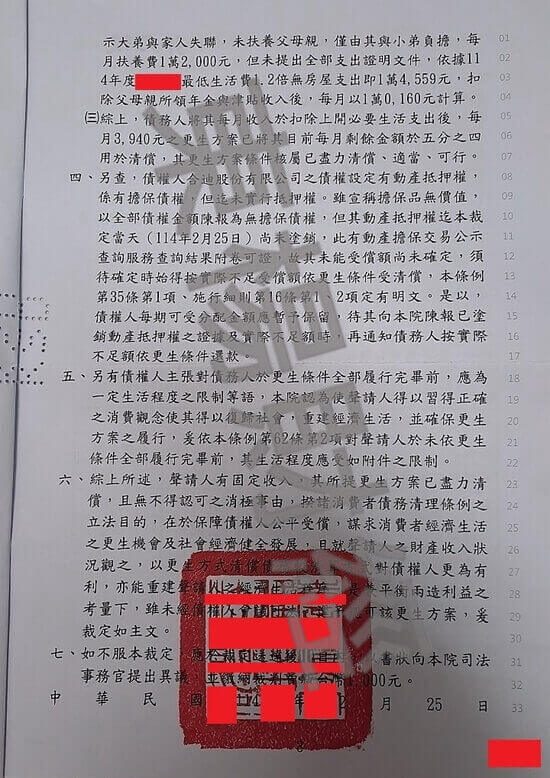 示大弟與家人失聯，未扶養父母親，僅由其與小弟負擔，每 01
月扶養費1萬2,000元，但未提出全部支出證明文件，依據11 02
4年度 最低生活費1.2倍無房屋支出即1萬4,559元，扣 03
除父母親所領年金與津貼收入後，每月以1萬0,160元計算。 04
㈢綜上，債務人將其每月收入於扣除上開必要生活支出後，每 05
月3,940元之更生方案已將其目前每月剩餘金額於五分之四 06
用於清償，其更生方案條件核屬已盡力清償、適當、可行。 07
四、另查，債權人合迪股份有限公司之債權設定有動產抵押權， 08
係有擔保債權，但迄未實行抵押權。雖宣稱擔保品無價值， 09
以全部債權金額陳報為無擔保債權，但其動產抵押權迄本裁 10
定當天（114年2月25日）尚未塗銷，此有動產擔保交易公示 11
查詢服務查詢結果附卷可證，故其未能受償額尚未確定，須 12
待確定時始得按實際不足受償額依更生條件受清償，本條例 13
第35條第1項、施行細則第16條第1、2項定有明文。是以， 14
債權人每期可受分配金額應暫予保留，待其向本院陳報已塗 15
銷動產抵押權之證據及實際不足額時，再通知債務人按實際 16
不足額依更生條件還款。 17
五、另有債權人主張對債務人於更生條件全部履行完畢前，應為 18
一定生活程度之限制等語，本院認為使聲請人得以習得正確 19
之消費觀念使其得以復歸社會，重建經濟生活，並確保更生 20
方案之履行，爰依本條例第62條第2項對聲請人於未依更生 21
條件全部履行完畢前，其生活程度應受如附件之限制。 22
六、綜上所述，聲請人有固定收入，其所提更生方案已盡力清 23
償，且無不得認可之消極事由，揆諸消費者債務清理條例之 24
立法目的，在於保障債權人公平受償，謀求消費者經濟生活 25
之更生機會及社會經濟健全發展，且就聲請人之財產收入狀 26
況觀之，以更生方式清償債 式對債權人更為有 27
利，亦能重建聲請人之經濟 衡平衡兩造利益之 28
考量下，雖未經債權人會 可該更生方案，爰 29
裁定如主文。 30
七、如不服本裁定，應於裁定送達後 以書狀向本院司法 31
事務官提出異議，並繳納裁判費新台幣1,000元。 32
中 華 民 國 114 年 2 月 25 日 33
3